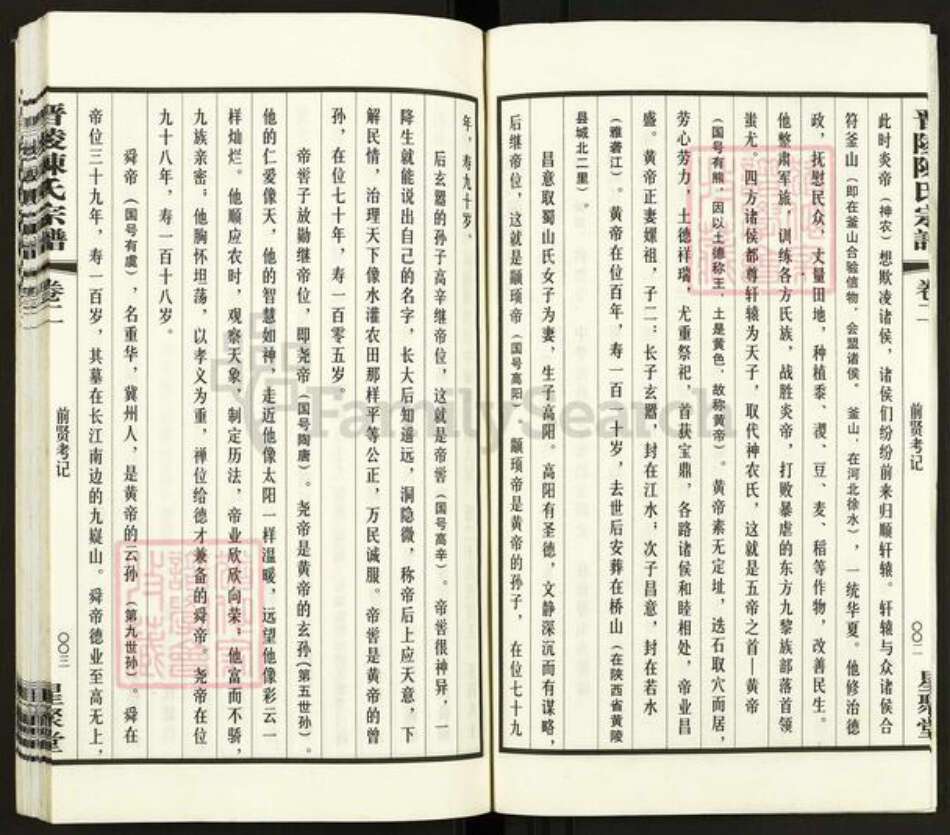 晋陵陈氏宗谱 卷二 前贤考记 〇〇二 星聚堂
此时炎帝（神农）想欺凌诸侯，诸侯们纷纷前来归顺轩辕。轩辕与众诸侯合
符釜山（即在釜山合验信物，会盟诸侯。 釜山，在河北徐水），一统华夏。他修治德
政，抚慰民众，丈量田地，种植黍、稷、豆、麦、稻等作物，改善民生。
他整肃军旅，训练各方氏族，战胜炎帝，打败暴虐的东方九黎族部落首领
蚩尤，四方诸侯都尊轩辕为天子，取代神农氏，这就是五帝之首—黄帝
（国号有熊，因以土德称王，土是黄色，故称黄帝）。黄帝素无定址，迭石取穴而居，
劳心劳力，土德祥瑞，尤重祭祀，首获宝鼎，各路诸侯和睦相处，帝业昌
盛。黄帝正妻嫘祖，子二：长子玄嚣，封在江水；次子昌意，封在若水
（雅砻江）。黄帝在位百年，寿一百一十岁，去世后安葬在桥山（在陕西省黄陵
县城北二里）。
昌意取蜀山氏女子为妻，生子高阳。高阳有圣德，文静深沉而有谋略，
后继帝位，这就是颛顼帝（国号高阳）。颛顼帝是黄帝的孙子，在位七十九
年，寿九十岁。
后玄嚣的孙子高辛继帝位，这就是帝喾（国号高辛）。帝喾很神异，一
降生就能说出自己的名字，长大后知遥远，洞隐微，称帝后上应天意，下
解民情，治理天下像水灌农田那样平等公正，万民诚服。帝喾是黄帝的曾
孙，在位七十年，寿一百零五岁。
帝喾子放勋继帝位，即尧帝（国号陶唐）。尧帝是黄帝的玄孙（第五世孙）。
他的仁爱像天，他的智慧如神，走近他像太阳一样温暖，远望他像彩云一
样灿烂。他顺应农时，观察天象，制定历法，帝业欣欣向荣；他富而不骄，
九族亲密；他胸怀坦荡，以孝义为重，禅位给德才兼备的舜帝。尧帝在位
九十八年，寿一百十八岁。
舜帝（国号有虞），名重华，冀州人，是黄帝的云孙（第九世孙）。舜在
帝位三十九年，寿一百岁，其墓在长江南边的九嶷山。舜帝德业至高无上，
晋陵陳氏宗譜 卷二 前贤考记 〇〇三 星聚堂
FamilySearch